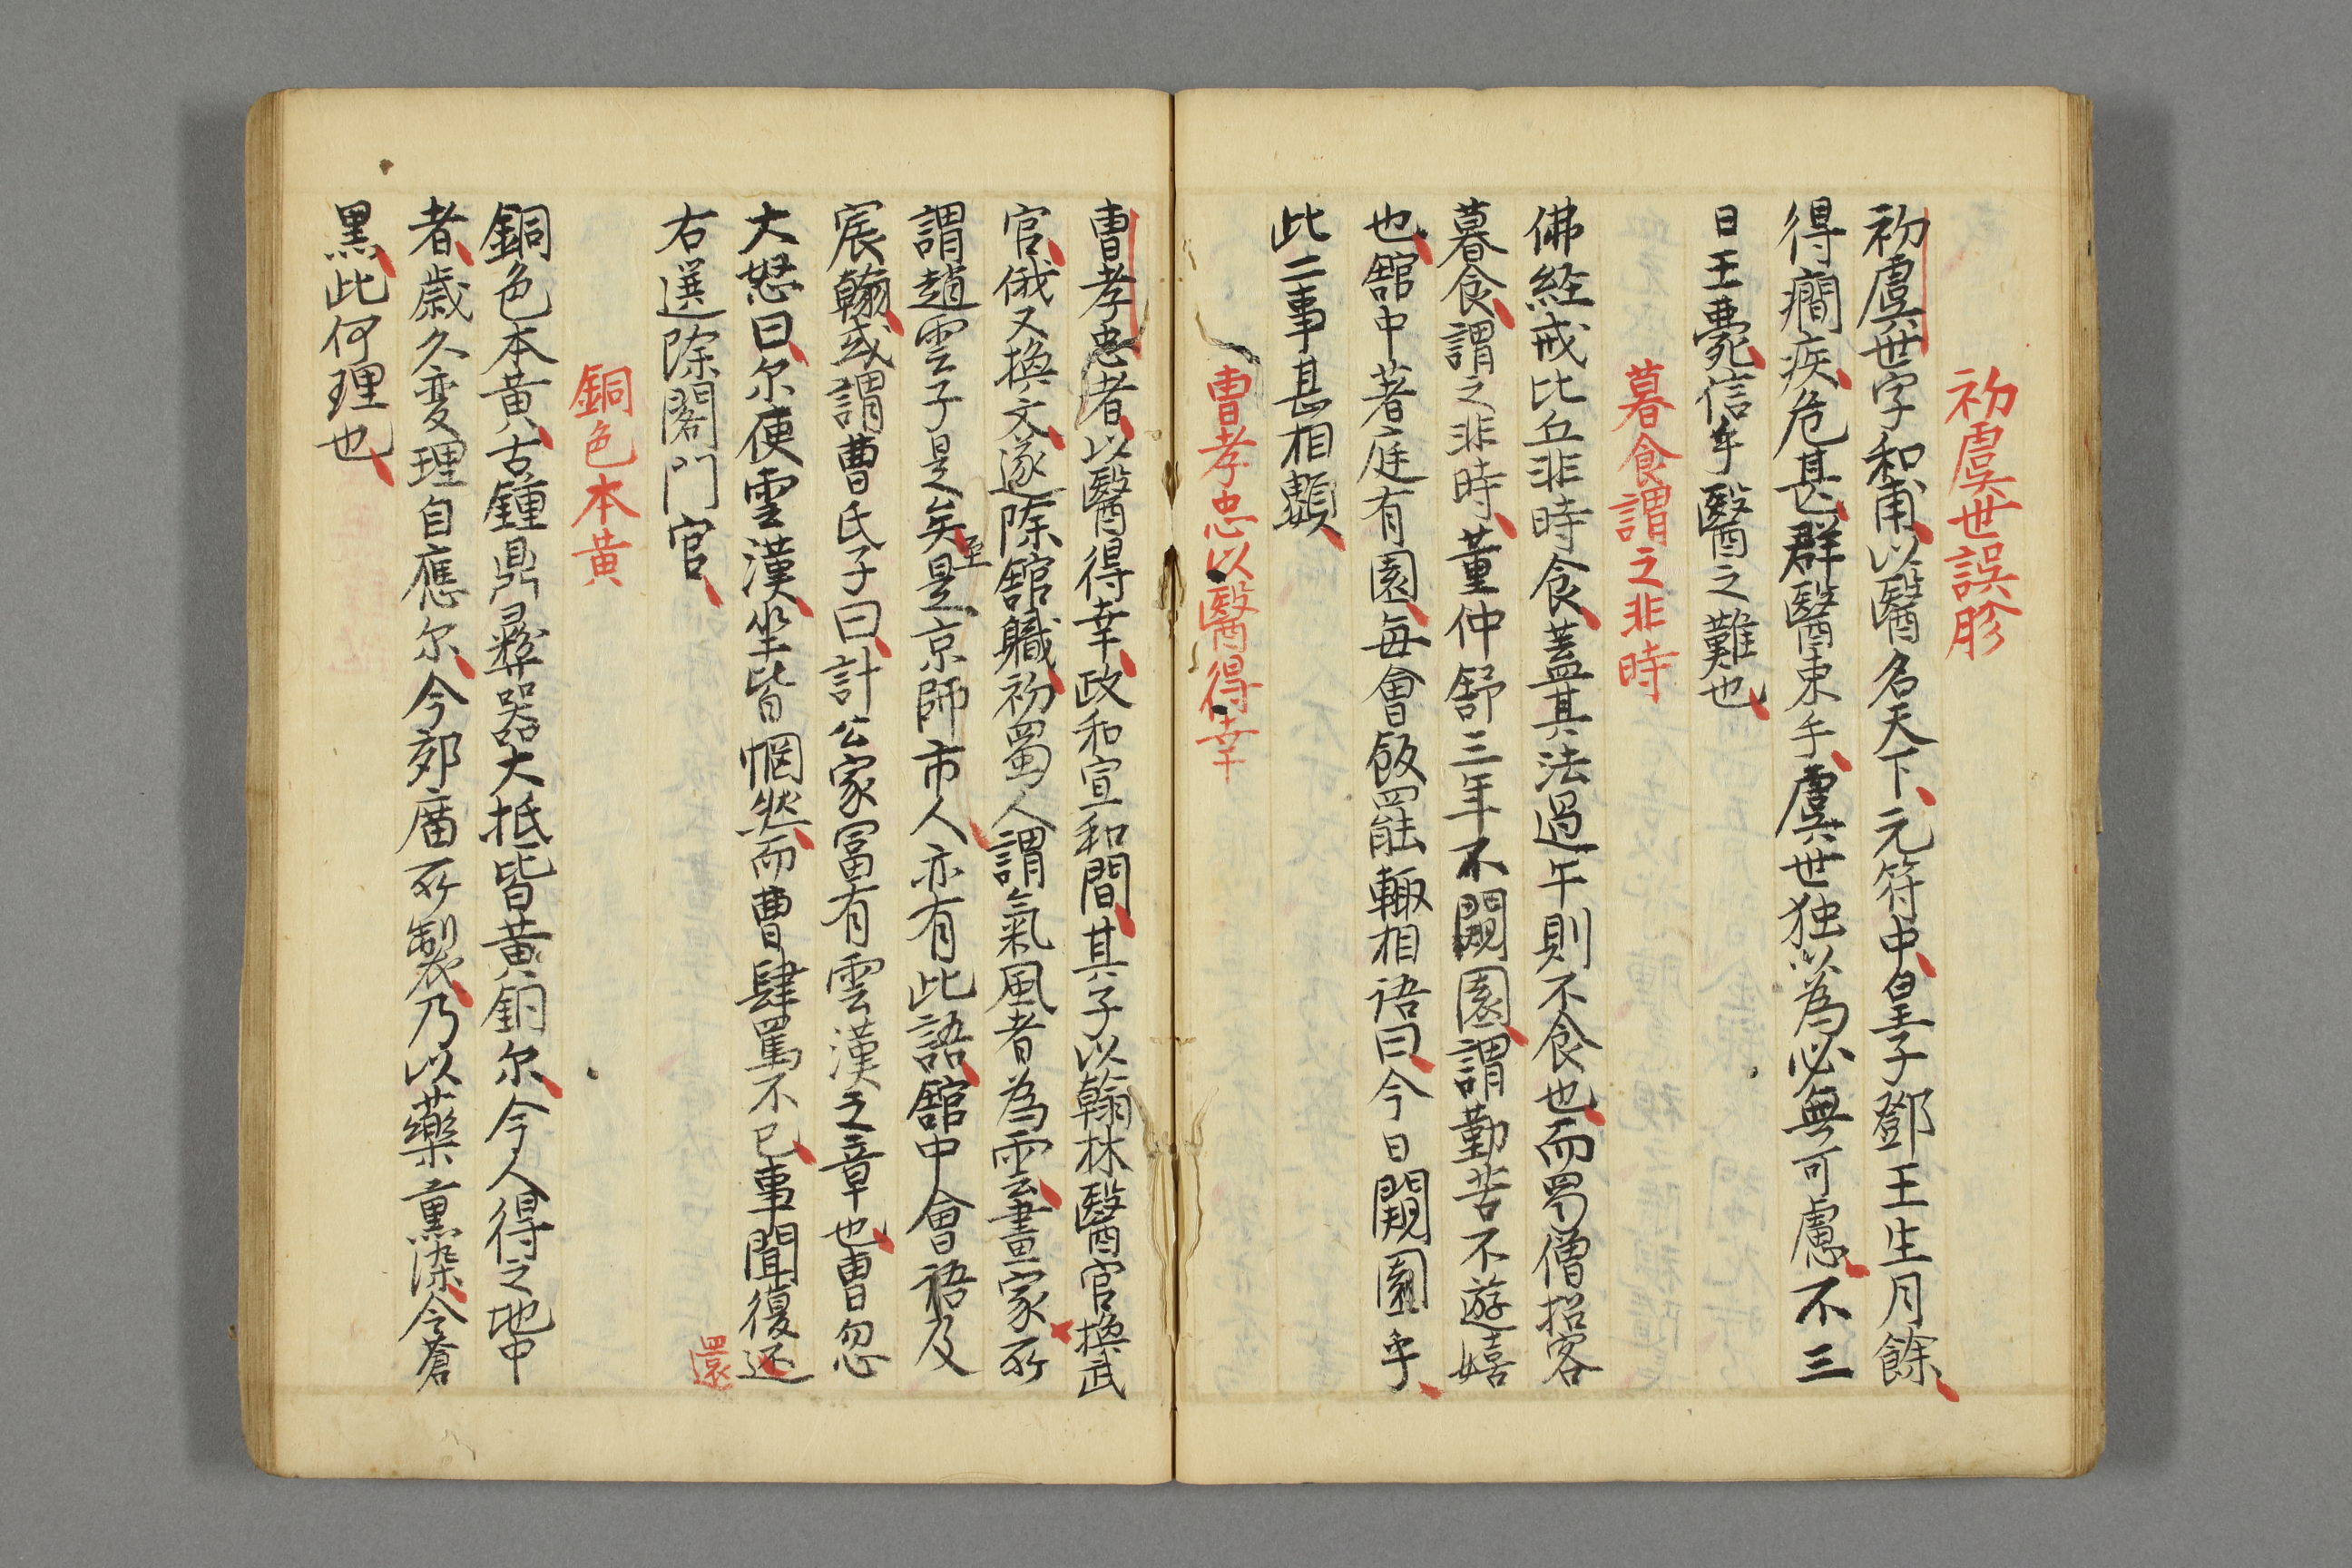 初虞世誤胗
初虞世字和甫以醫名天下元符中皇子鄧王生月餘
得癇疾危甚群醫束手虞世独以為必無可慮不三
日王薨信乎醫之難也
暮食謂之非時
佛経戒比丘非時食蓋其法過午則不食也而蜀僧招客
暮食謂之非時董仲舒三年不闚園謂勤苦不遊嬉
也舘中著庭有園毎會飯罷輙相语曰今日闚園乎
此二事甚相類
曺孝忠以醫得幸
曺孝忠者以醫得幸政和宣和間其子以翰林醫官換武
官俄又換文遂除舘職初蜀人謂氣風者為雲畫家所
謂趙雲子是矣至是京師市人亦有此語舘中會语及
宸翰或謂曹氏子曰計公家冨有雲漢之章也曺忽
大怒曰尔使雲漢坐皆惘然而曹肆罵不已事聞復还
還
右選除閣門官
銅色本黄
銅色本黄古鍾鼎彛器大抵皆黄銅尔今人得之地中
者歳久变理自應尔今郊廟所製乃以藥熏染令蒼
黒此何理也